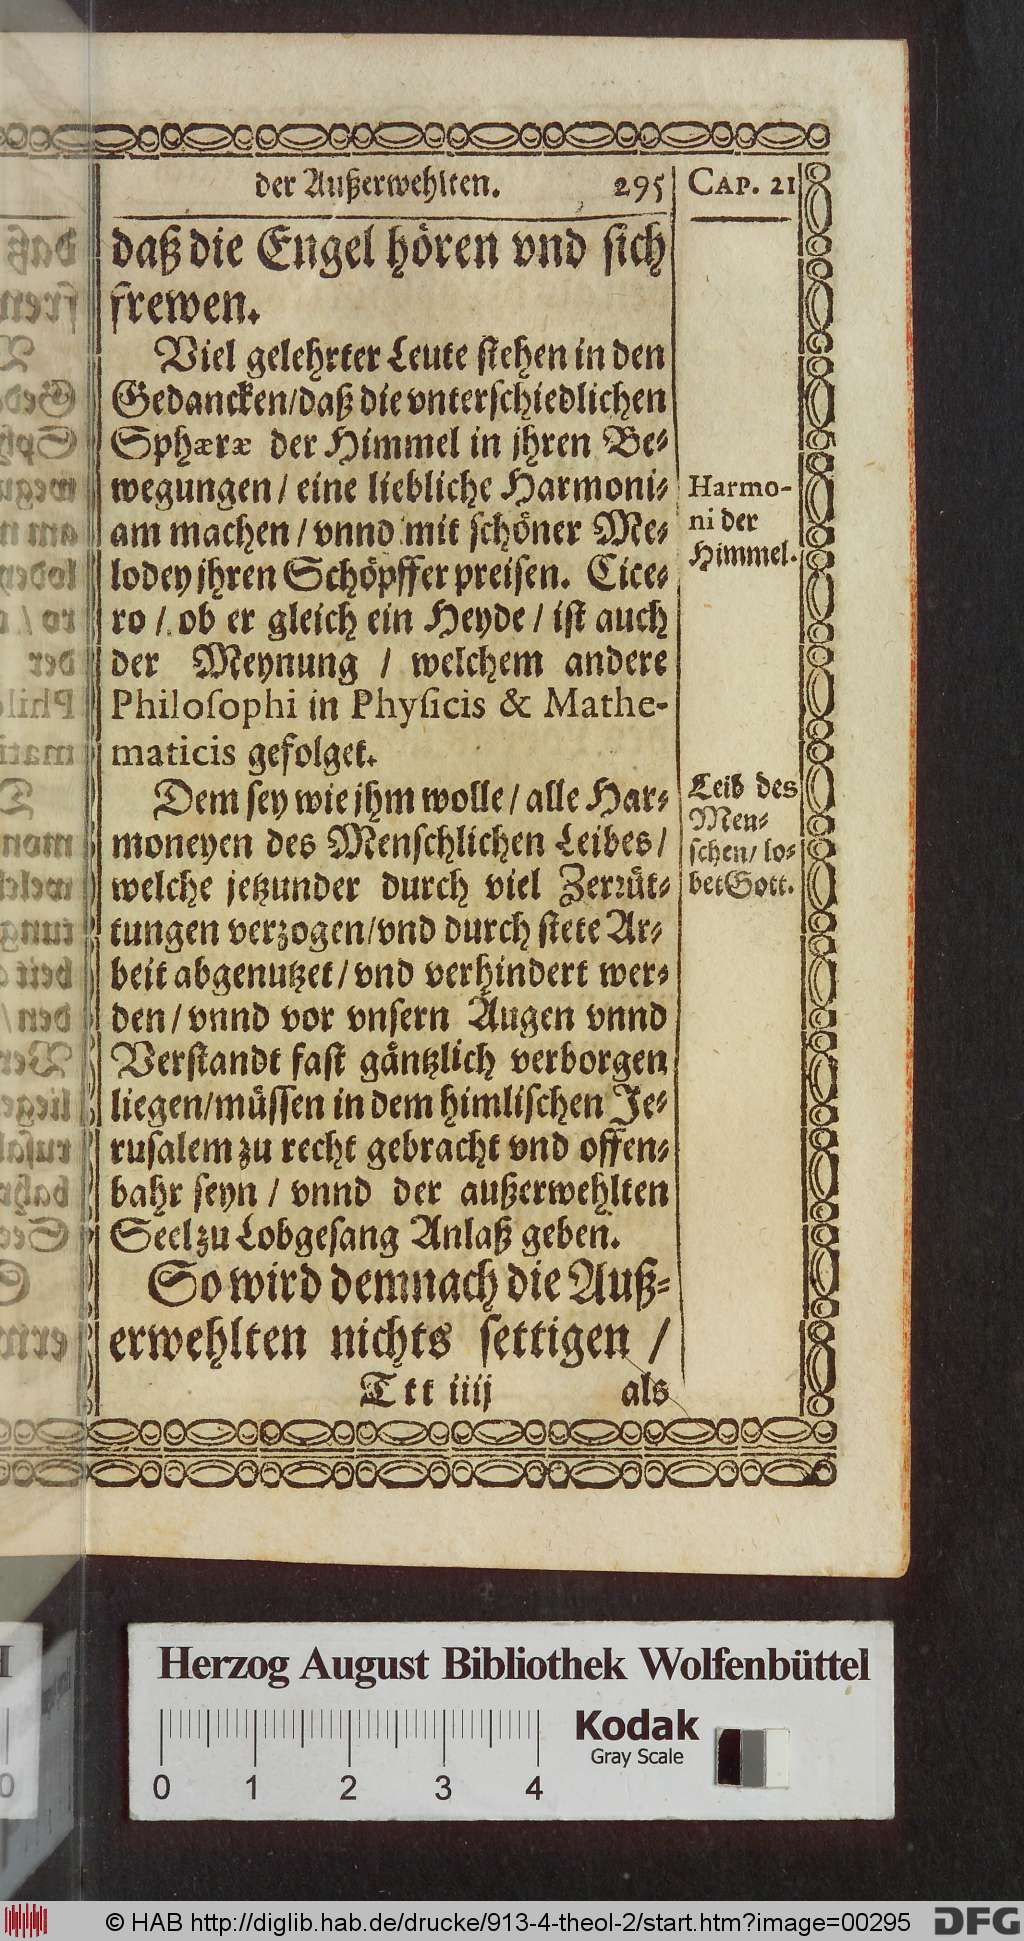 der Außerwehlten. 295 CAP. 21
daß die Engel hören vnd sich
frewen.
Viel gelehrter Leute stehen in den
Gedancken/daß die vnterschiedlichen
Sphæræ der Himmel in jhren Be-
wegungen / eine liebliche Harmoni-
am machen / vnnd mit schöner Me-
lodey jhren Schöpffer preisen. Cice-
ro / ob er gleich ein Heyde / ist auch
der Meynung / welchem andere
Philosophi in Physicis & Mathe-
maticis gefolget.
Harmo-
ni der
Himmel.
Dem sey wie jhm wolle / alle Har-
moneyen des Menschlichen Leibes /
welche jetzunder durch viel Zerrüt-
tungen verzogen/vnd durch stete Ar-
beit abgenutzet / vnd verhindert wer-
den / vnnd vor vnsern Augen vnnd
Verstandt fast gäntzlich verborgen
liegen/müssen in dem himlischen Je-
rusalem zu recht gebracht vnd offen-
bahr seyn / vnnd der außerwehlten
Seel zu Lobgesang Anlaß geben.
Leib des
Men-
schen/ lo-
bet Gott.
So wird demnach die Auß-
erwehlten nichts settigen /
Ttt iiij als
Herzog August Bibliothek Wolfenbüttel
Kodak
Gray Scale
0 1 2 3 4
© HAB http://diglib.hab.de/drucke/913-4-theol-2/start.htm?image=00295 DFG